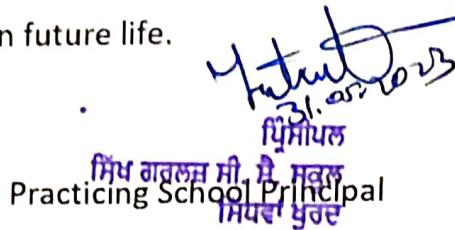 n future life.
31.05.2023
ਪ੍ਰਿੰਸੀਪਲ
ਸਿੱਖ ਗਰਲਜ਼ ਸੀ. ਸੈ. ਸਕੂਲ
Practicing School Principal
ਸਿਧਵਾਂ ਖੁਰਦ